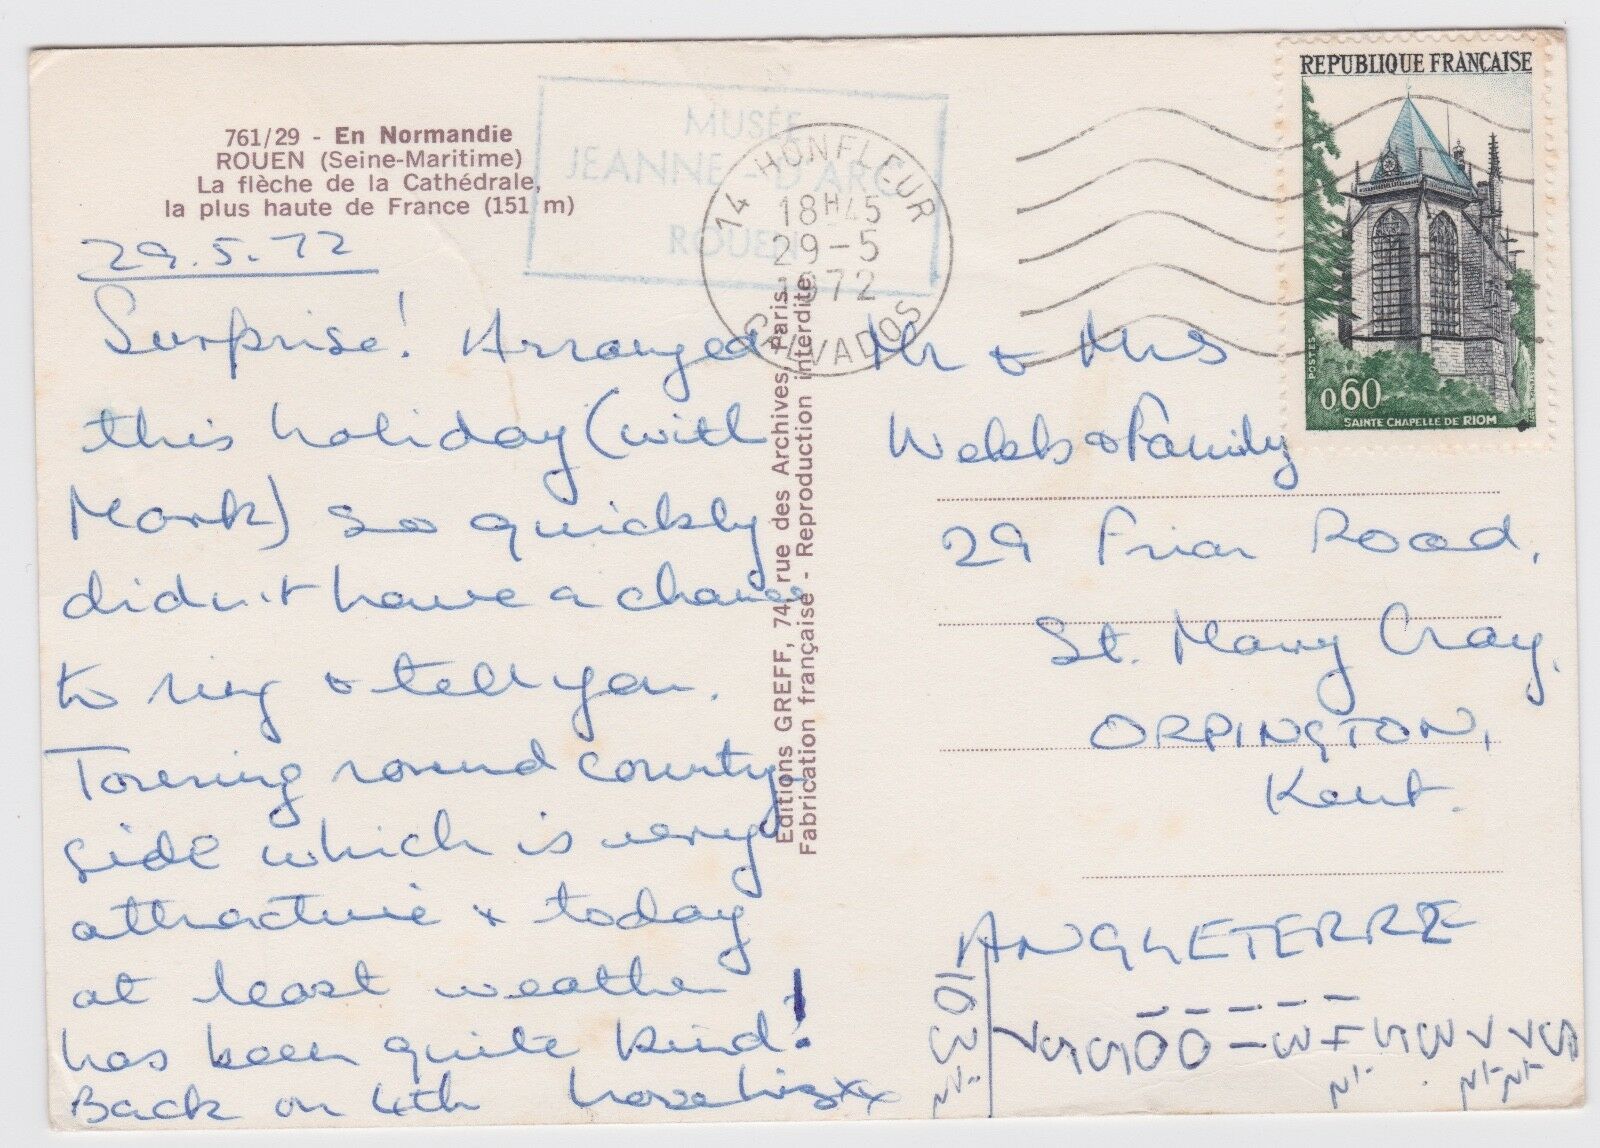 761/29 - En Normandie
ROUEN (Seine-Maritime)
La flèche de la Cathédrale,
la plus haute de France (151 m)
MUSÉE
JEANNE-D'ARC
ROUEN
14 HONFLEUR
18H45
29-5
1972
CALVADOS
REPUBLIQUE FRANÇAISE
POSTES
0,60
SAINTE CHAPELLE DE RIOM
29.5.72
Surprise! Arranged
this holiday (with
Mark) so quickly
didn't have a chance
to ring & tell you.
Touring round country
side which is very
attractive & today
at least weather
has been quite kind!
Back on 4th love Liz xxx
Editions GREFF, 74, rue des Archives, Paris.
Fabrication française - Reproduction interdite
Mr & Mrs
Webb & Family
29 Friar Road,
St. Mary Cray,
ORPINGTON,
Kent.
ANGLETERRE
103